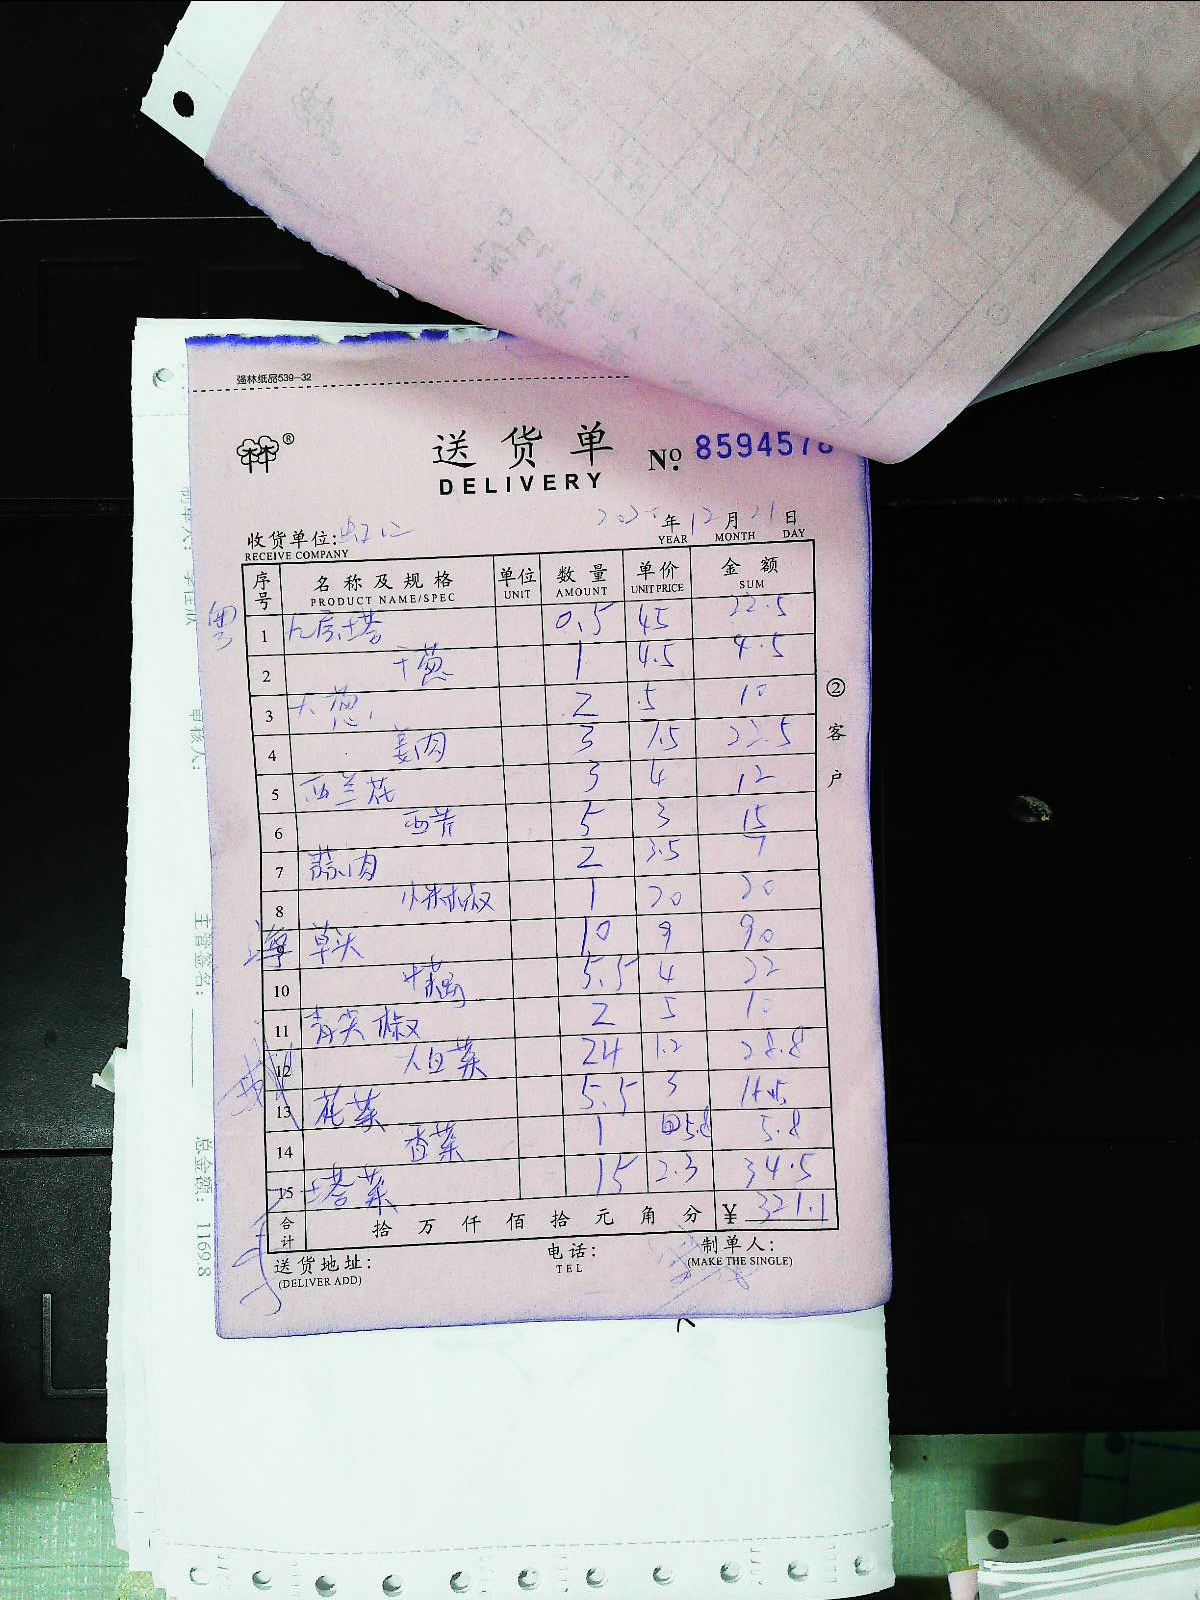 强林纸品539-32
®
送货单
DELIVERY
№ 8594578
收货单位: 虹江
RECEIVE COMPANY
年 12 月 21 日
YEAR MONTH DAY
序号 名称及规格 单位 数量 单价 金额
PRODUCT NAME/SPEC UNIT AMOUNT UNIT PRICE SUM
1 九层塔 0.5 45 22.5
2 干葱 1 4.5 4.5
3 大葱 2 5 10
4 姜肉 3 7.5 22.5
5 西兰花 3 4 12
6 西芹 5 3 15
7 蒜肉 2 3.5 7
8 小米椒 1 20 20
9 草头 10 9 90
10 5.5 4 22
11 青尖椒 2 5 10
12 大白菜 24 1.2 28.8
13 花菜 5.5 3 16.5
14 香菜 1 5.8 5.8
15 塔菜 15 2.3 34.5
合计 拾 万 仟 佰 拾 元 角 分 ¥ 321.1
送货地址: 电话: 制单人:
(DELIVER ADD) TEL (MAKE THE SINGLE)
② 客户
审核人:
主管签名:
总金额: 1169.8